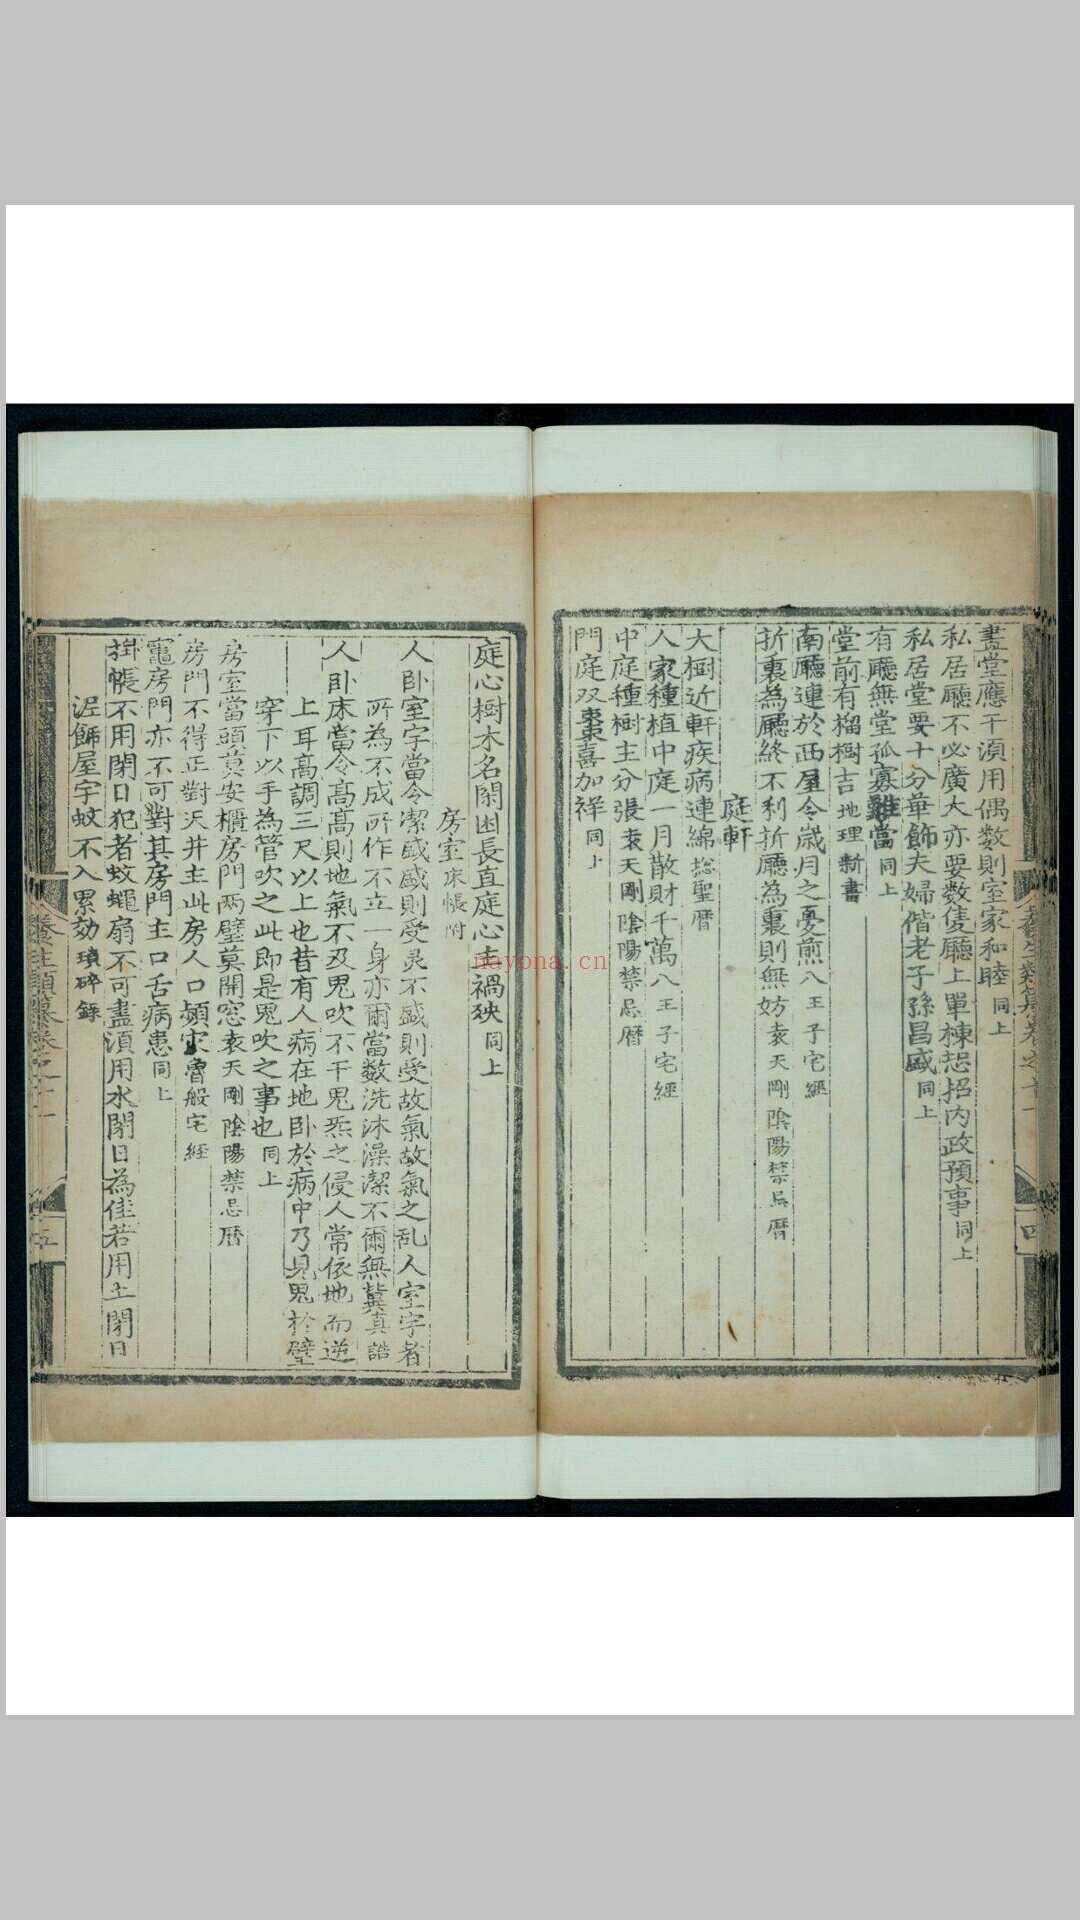 畫堂應干須用偶数則室家和睦同上
私居廳不必廣大亦要数隻廳上單棟恐招内政預事同上
私居堂要十分華飾夫婦偕老子孫昌盛同上
有廳無堂孤寡難當同上
堂前有榴樹吉地理新書
南廳連於西屋令歳月之憂煎八王子宅經
折裏為廳終不利折廳為裏則無妨袁天剛陰陽禁忌暦
庭軒
大樹近軒疾病連綿總聖暦
人家種植中庭一月散財千萬八王子宅經
中庭種樹主分張袁天剛陰陽禁忌暦
門庭双棗喜加祥同上
養生類纂卷之十一
四
庭心樹木名閑困長直庭心主禍殃同上
房室床帳附
人卧室宇當令潔盛盛則受灵不盛則受故氣故氣之乱人室宇者
所為不成所作不立一身亦爾當数洗沐澡潔不爾無冀真誥
人卧床當令高高則地氣不及鬼吹不干鬼炁之侵人常依地而逆
上耳高調三尺以上也昔有人病在地卧於病中乃見鬼於壁
穿下以手為管吹之此即是鬼吹之事也同上
房室當頭莫安櫃房門兩壁莫開窓袁天剛陰陽禁忌暦
房門不得正對天井主此房人口頻灾魯般宅經
竈房門亦不可對其房門主口舌病患同上
掛帳不用閉日犯者蚊蠅扇不可盡須用水閉日為佳若用土閉日
泥飾屋宇蚊不入累効瑣碎録
養生類纂卷之十一
五
nayona.cn